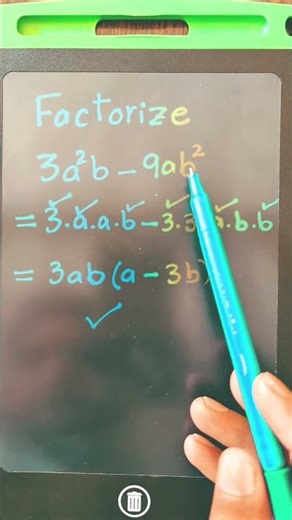 Factorize
3a²b - 9ab²
= 3.a.a.b - 3.3.a.b.b
= 3ab(a - 3b)